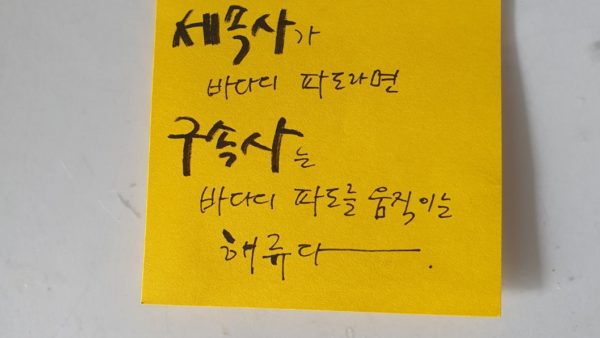 세속사가
바다의 파도라면
구속사는
바다의 파도를 움직이는
해류다